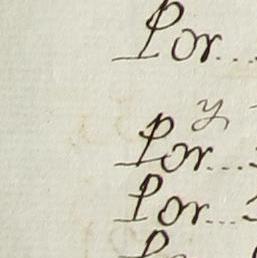 Por...
y
Por...
Por...